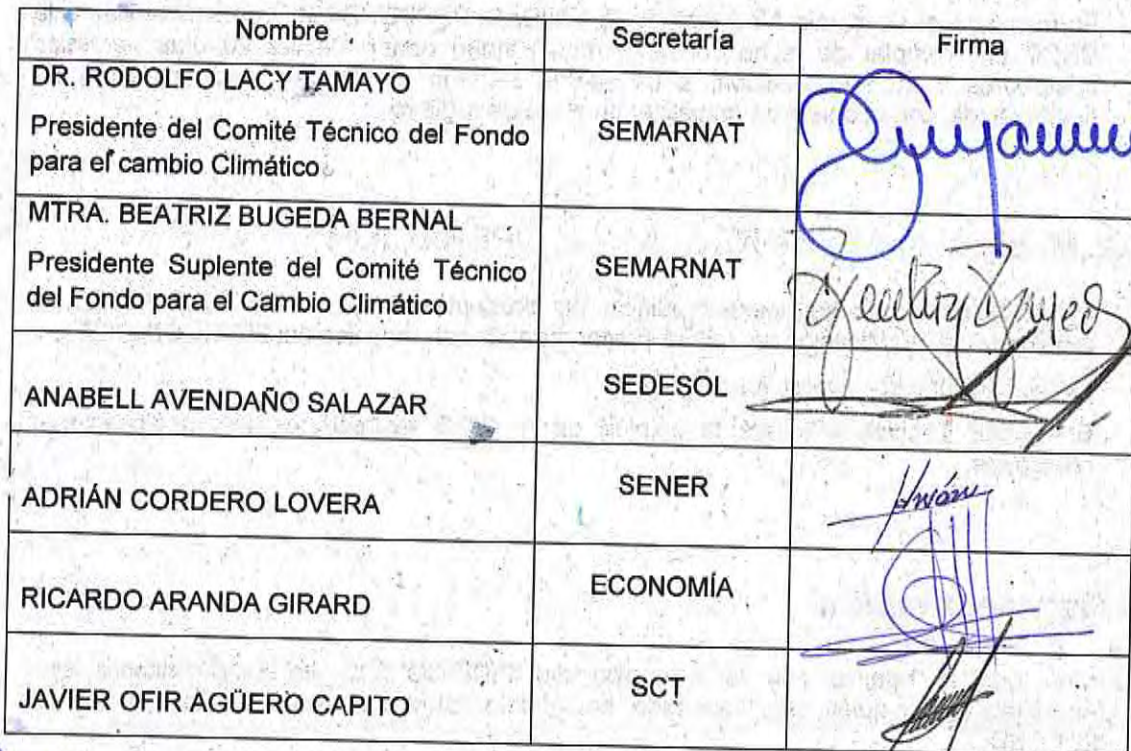 Nombre Secretaría Firma
DR. RODOLFO LACY TAMAYO
Presidente del Comité Técnico del Fondo
para el cambio Climático
SEMARNAT
MTRA. BEATRIZ BUGEDA BERNAL
Presidente Suplente del Comité Técnico
del Fondo para el Cambio Climático
SEMARNAT
ANABELL AVENDAÑO SALAZAR SEDESOL
ADRIÁN CORDERO LOVERA SENER
RICARDO ARANDA GIRARD ECONOMÍA
JAVIER OFIR AGÜERO CAPITO SCT